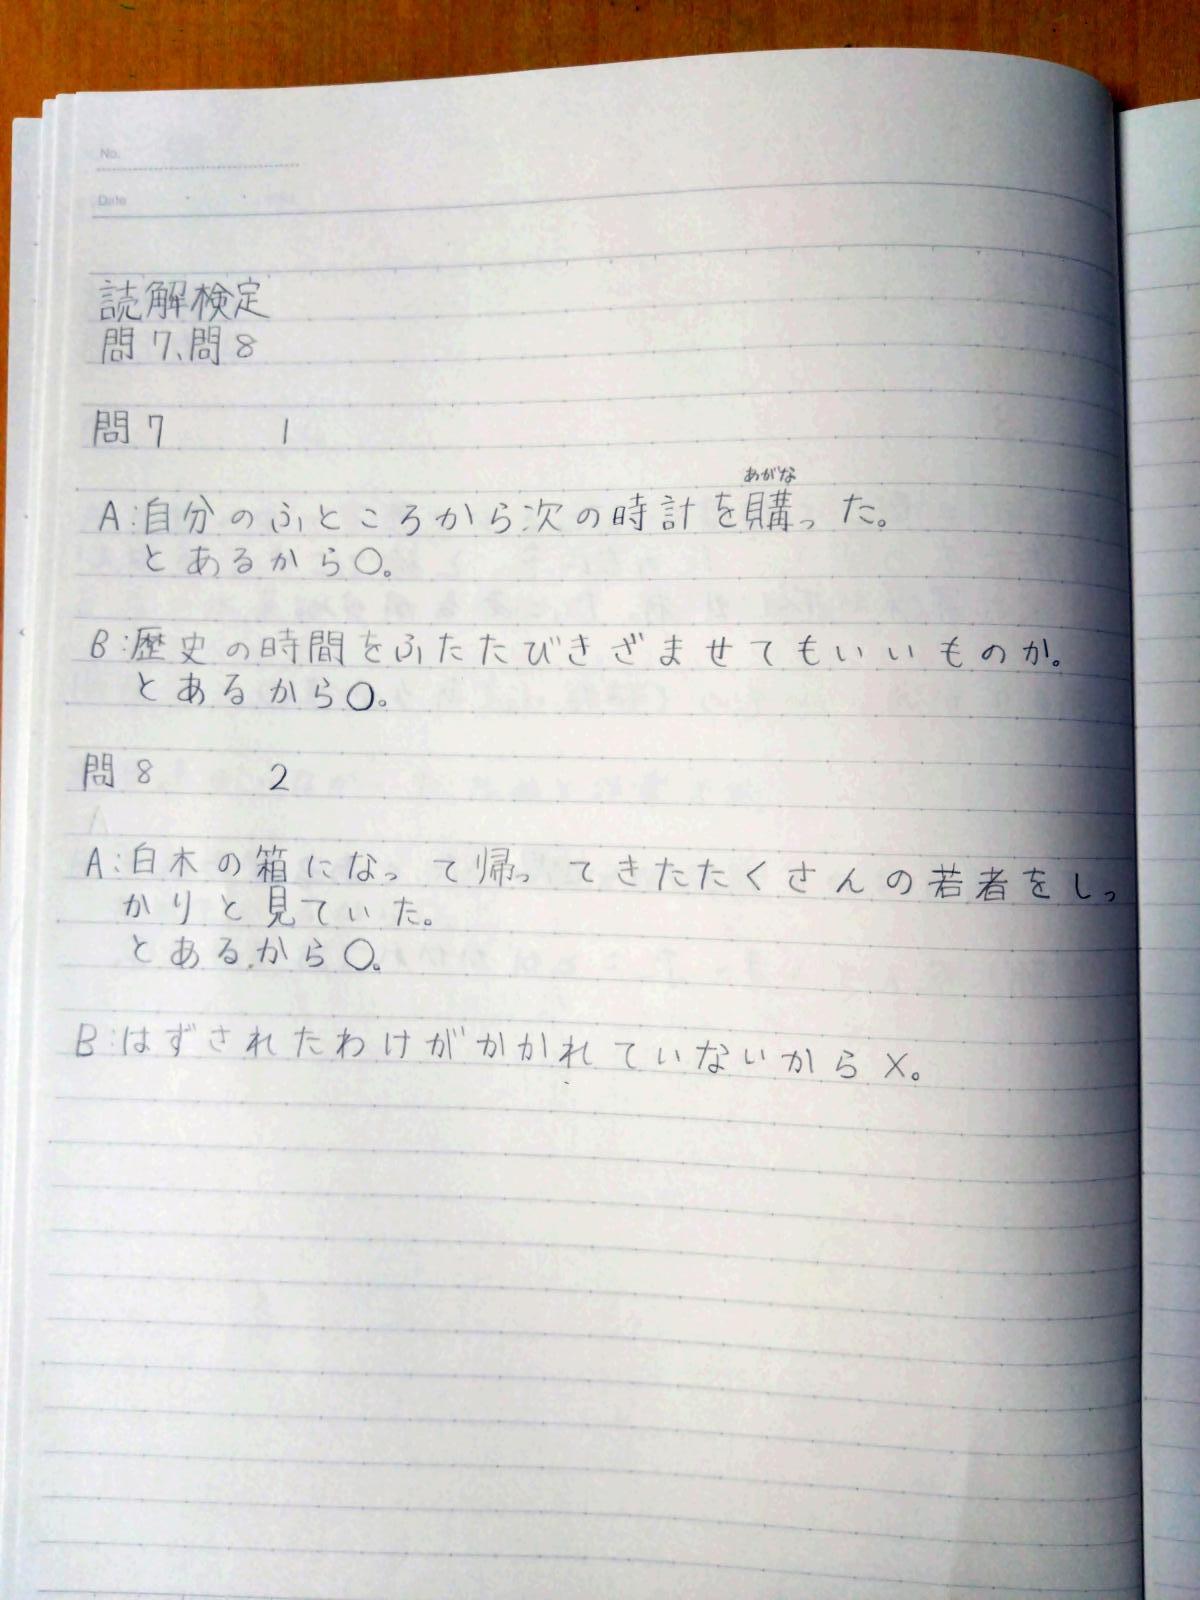 No.
Date
読解検定
問7、問8
問7 1
あがな
A:自分のふところから次の時計を購った。
とあるから○。
B:歴史の時間をふたたびきざませてもいいものか。
とあるから○。
問8 2
A:白木の箱になって帰ってきたたくさんの若者をしっ
かりと見ていた。
とあるから○。
B:はずされたわけがかかれていないから×。